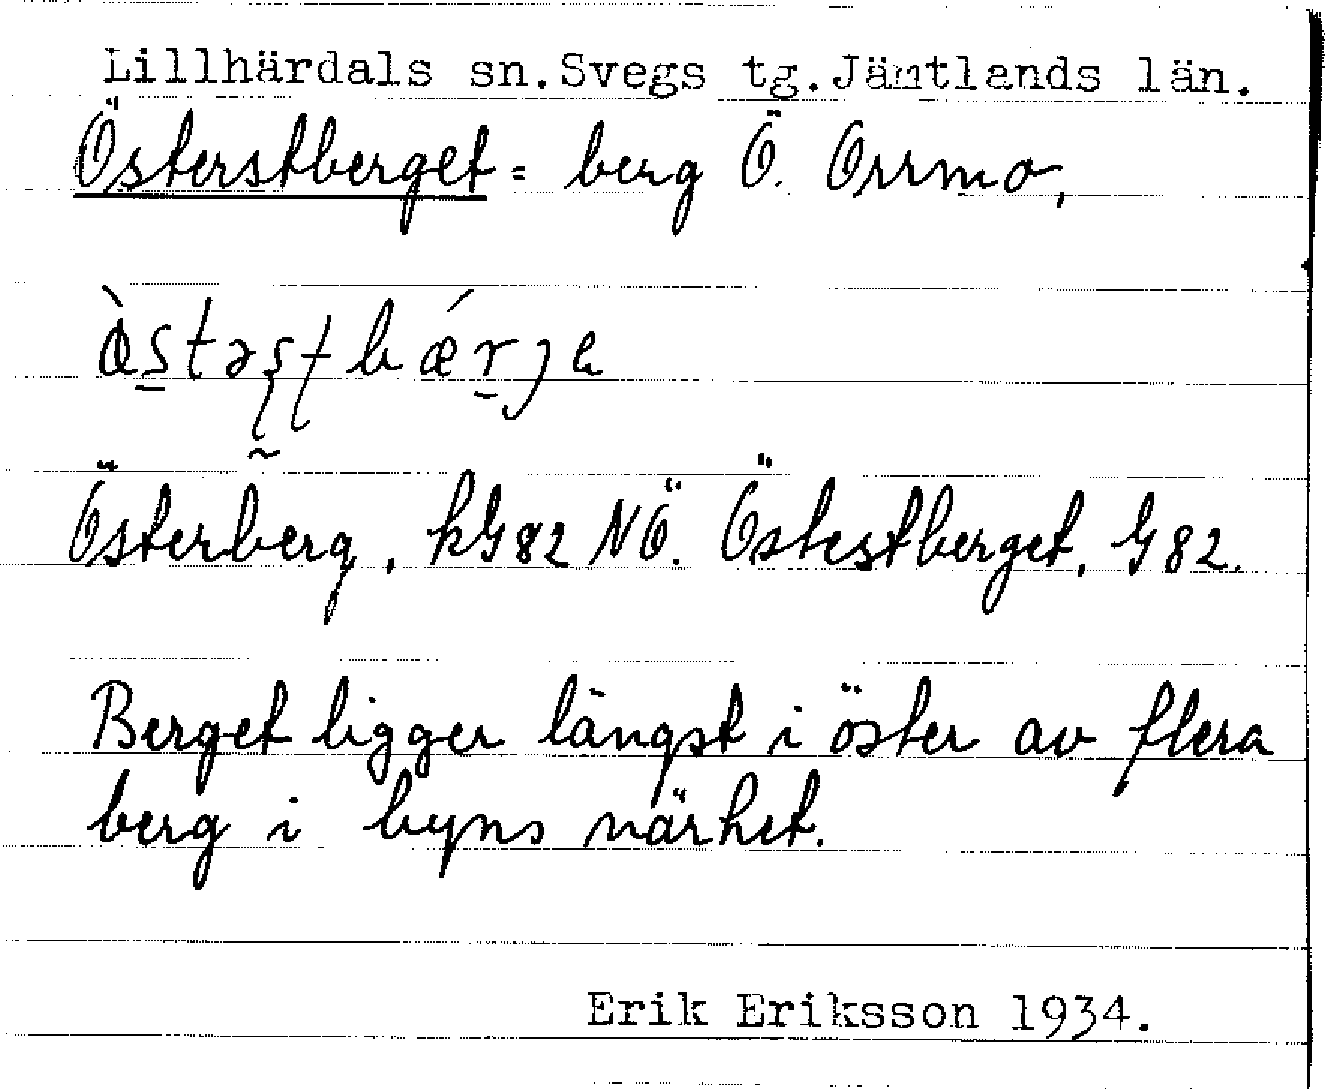 Lillhärdals sn. Svegs tg. Jämtlands län.
Österstberget = berg Ö. Orrmo,
Österberg, kG82 NÖ. Östestberget, G82.
Berget ligger längst i öster av flera
berg i byns närhet.
Erik Eriksson 1934.